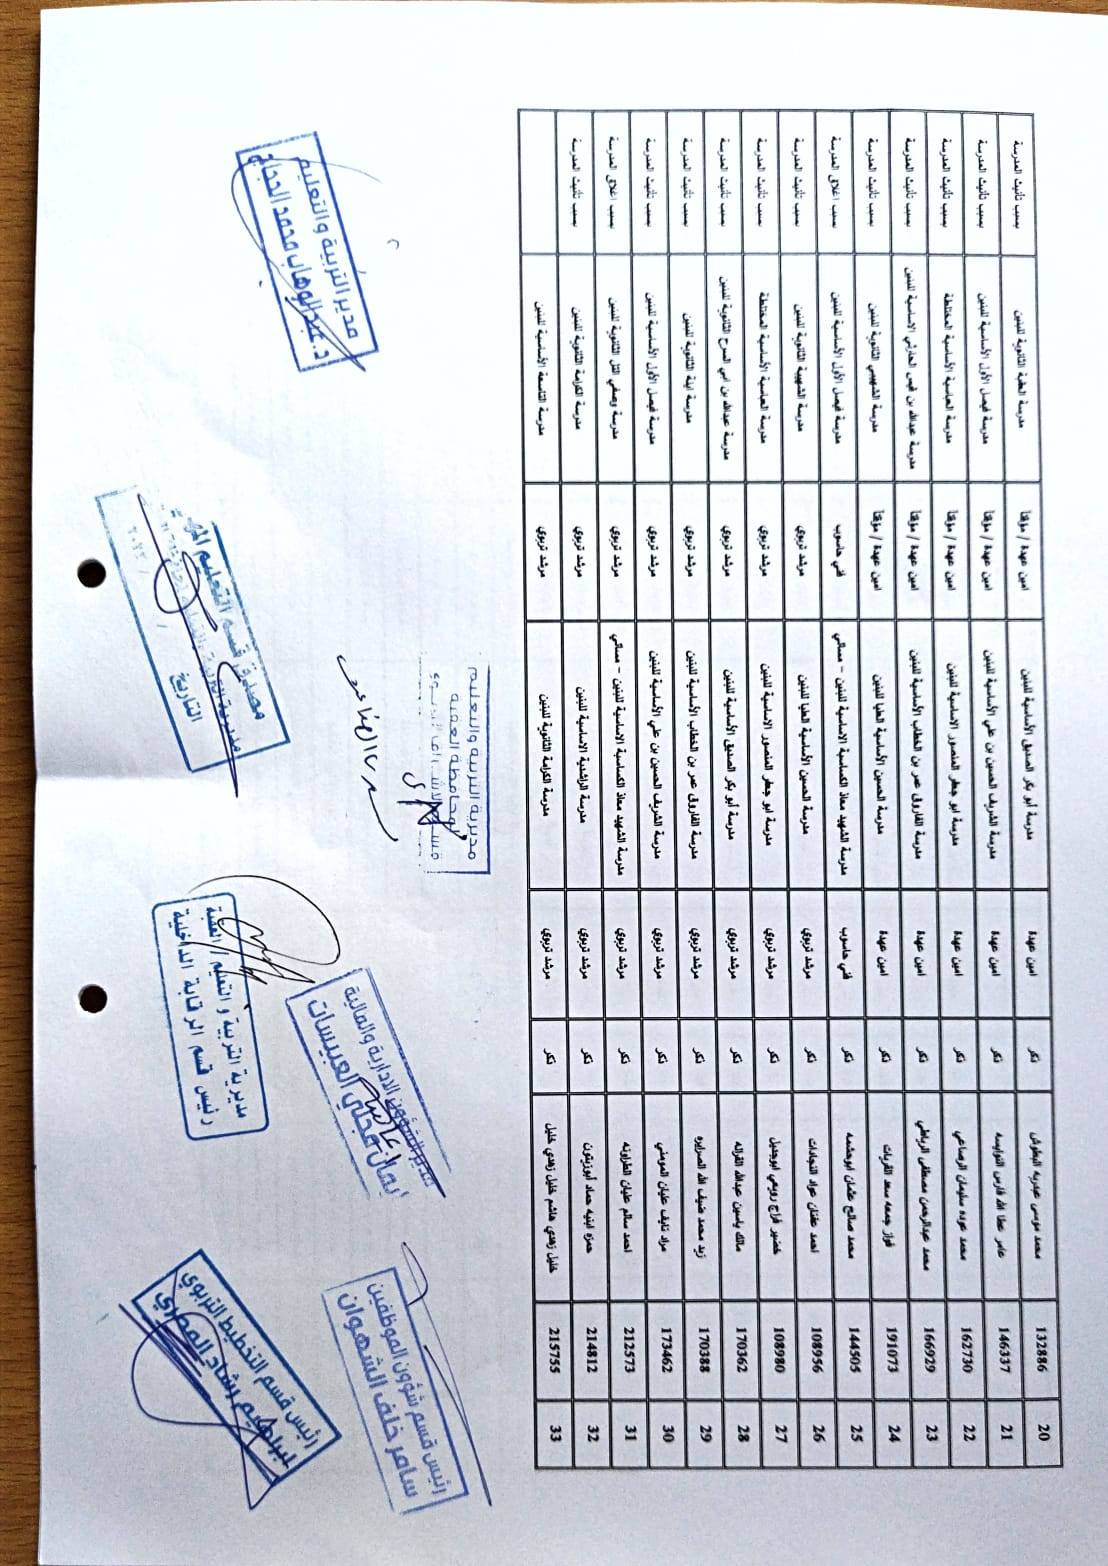 20 132886 محمد موسى عبدربه البطوش ذكر امين عهدة مدرسة أبو بكر الصديق الأساسية للبنين امين عهدة / مؤقتا مدرسة العقبة الثانوية للبنين بسبب تأنيث المدرسة
21 146337 عامر عطا الله فارس النوايسه ذكر امين عهدة مدرسة الشريف الحسين بن علي الأساسية للبنين امين عهدة / مؤقتا مدرسة فيصل الأول الأساسية للبنين بسبب تأنيث المدرسة
22 162730 محمد عوده سليمان الرصاعي ذكر امين عهدة مدرسة ابو جعفر المنصور الاساسية للبنين امين عهدة / مؤقتا مدرسة العباسية الأساسية المختلطة بسبب تأنيث المدرسة
23 166929 محمد عبدالرحمن مصطفى الرياطي ذكر امين عهدة مدرسة الفاروق عمر بن الخطاب الأساسية للبنين امين عهدة / مؤقتا مدرسة عبدالله بن قيس الحارثي الاساسية للبنين بسبب تأنيث المدرسة
24 191073 فواز جمعه سعد القريات ذكر امين عهدة مدرسة الحسين الأساسية العليا للبنين امين عهدة / مؤقتا مدرسة الشهيبي الثانوية للبنين بسبب تأنيث المدرسة
25 144505 محمد صالح عثمان ابوحشمه ذكر فني حاسوب مدرسة الشهيد معاذ الكساسبة الاساسية للبنين - مسائي فني حاسوب مدرسة فيصل الأول الأساسية للبنين بسبب اغلاق المدرسة
26 108956 احمد عفنان عواد النجادات ذكر مرشد تربوي مدرسة الحسين الأساسية العليا للبنين مرشد تربوي مدرسة الشهيبية الثانوية للبنين بسبب تأنيث المدرسة
27 108980 خضير فراج رويضي ابوجليل ذكر مرشد تربوي مدرسة ابو جعفر المنصور الاساسية للبنين مرشد تربوي مدرسة العباسية الأساسية المختلطة بسبب تأنيث المدرسة
28 170362 مالك ياسين عبدالله القراله ذكر مرشد تربوي مدرسة أبو بكر الصديق الأساسية للبنين مرشد تربوي مدرسة عبدالله بن ابي السرح الثانوية للبنين بسبب تأنيث المدرسة
29 170388 زيد محمد ضيف الله الصرايره ذكر مرشد تربوي مدرسة الفاروق عمر بن الخطاب الأساسية للبنين مرشد تربوي مدرسة ايلة الثانوية للبنين بسبب تأنيث المدرسة
30 173462 مراد نايف عليان المومني ذكر مرشد تربوي مدرسة الشريف الحسين بن علي الأساسية للبنين مرشد تربوي مدرسة فيصل الأول الأساسية للبنين بسبب تأنيث المدرسة
31 212573 احمد سالم عليان الطراونه ذكر مرشد تربوي مدرسة الشهيد معاذ الكساسبة الاساسية للبنين - مسائي مرشد تربوي مدرسة وصفي التل الثانوية للبنين بسبب اغلاق المدرسة
32 214812 حمزه ابنيه حماد أبوزيتون ذكر مرشد تربوي مدرسة الراشدية الاساسية للبنين مرشد تربوي مدرسة الكرامة الثانوية للبنين بسبب تأنيث المدرسة
33 215755 خليل زهدي هاشم خليل زهدي خليل ذكر مرشد تربوي مدرسة الكرامة الثانوية للبنين مرشد تربوي مدرسة التاسعة الأساسية للبنين
رئيس قسم شؤون الموظفين
سامر خلف الشهوان
رئيس قسم التخطيط التربوي
ابراهيم رشاد المصري
مدير الشؤون الادارية والمالية
ايمان مجلي العبيسات
مديرية التربية و التعليم / العقبة
رئيس قسم الرقابة الداخلية
مديرية التربية والتعليم
لمحافظة العقبة
قسم الاشراف التربوي
مصادقة قسم التعليم
التاريخ
مدير التربية والتعليم
د. عبدالوهاب محمد الحجايا